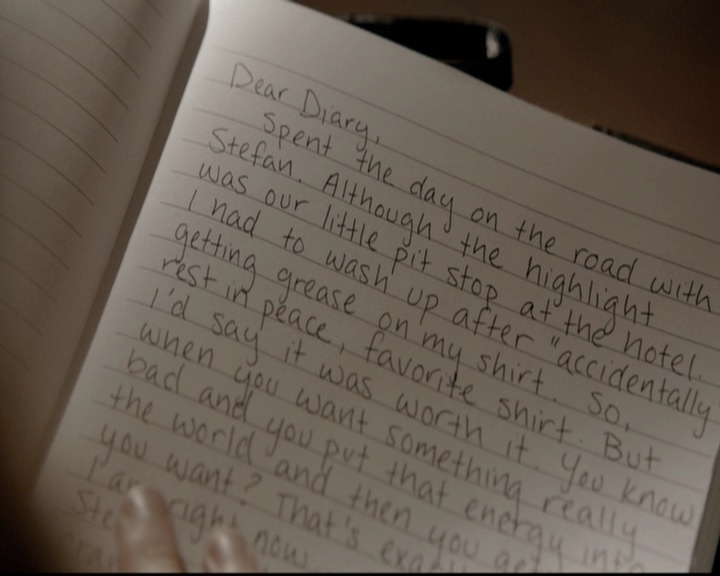 Dear Diary,
Spent the day on the road with
Stefan. Although the highlight
was our little pit stop at the hotel.
I had to wash up after "accidentally
getting grease on my shirt. So,
rest in peace, favorite shirt. But
I'd say it was worth it. You know
when you want something really
bad and you put that energy into
the world and then you get
you want? That's exa
I a right now
Ste